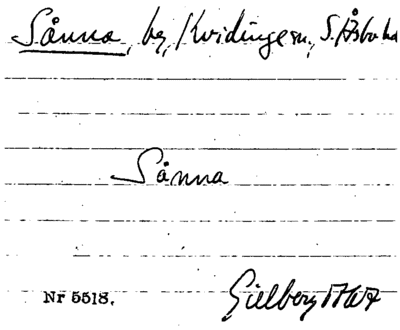 Sånna, by, Kvidinge sn., S. Åsbo hd
Sånna
Nr 5518.
Gillberg